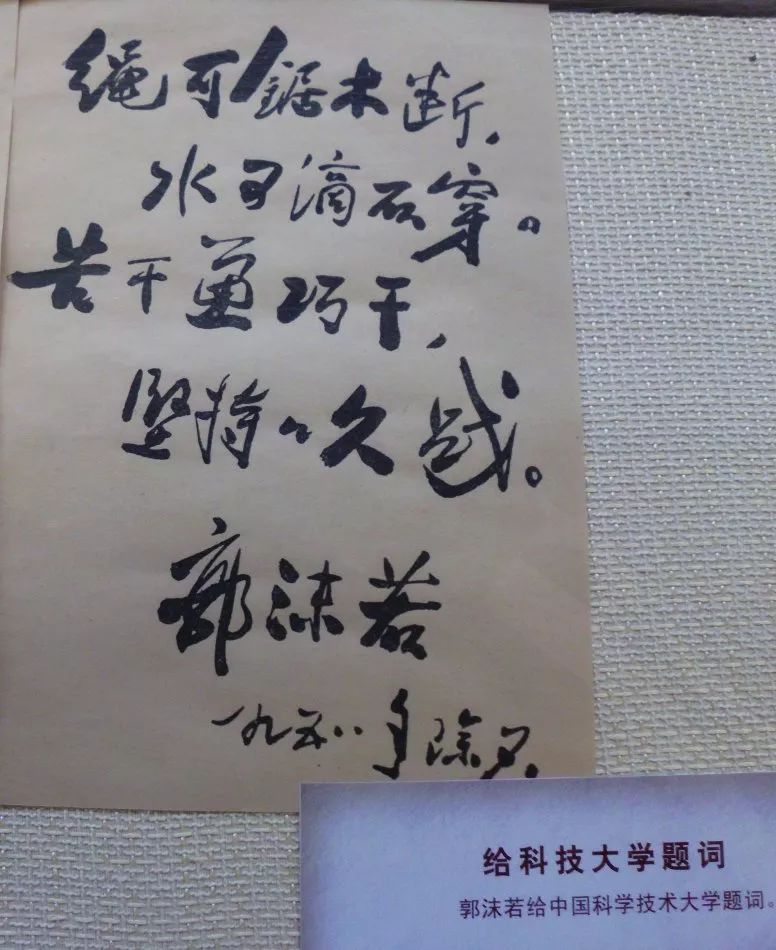 绳可鋸木断，
水可滴石穿。
苦干兼巧干，
坚持必久成。
郭沫若
一九五八年除夕
给科技大学题词
郭沫若给中国科学技术大学题词。